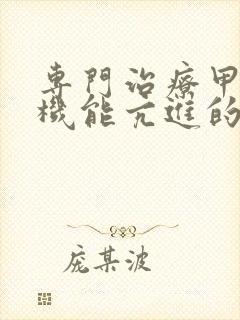 專門治療甲
機能亢進的
庞某波